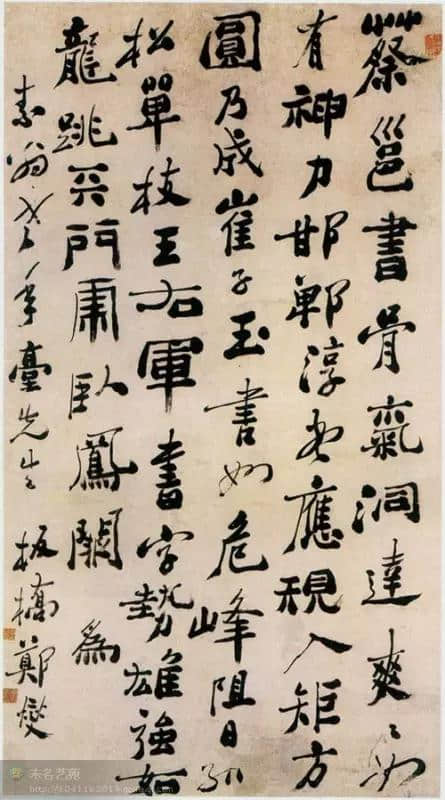 蔡邕書骨氣洞達爽爽如
有神力邯鄲淳書應規入矩方
圓乃成崔子玉書如危峰阻日孤
松單枝王右軍書字勢雄強如
龍跳天門虎臥鳳闕 為
素翁老年臺先生 板橋鄭燮
未名艺苑